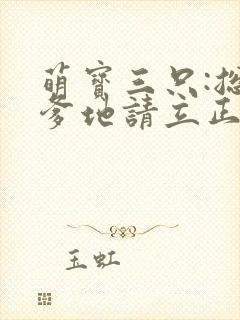 萌寶三只:
爹地請立正
玉虹